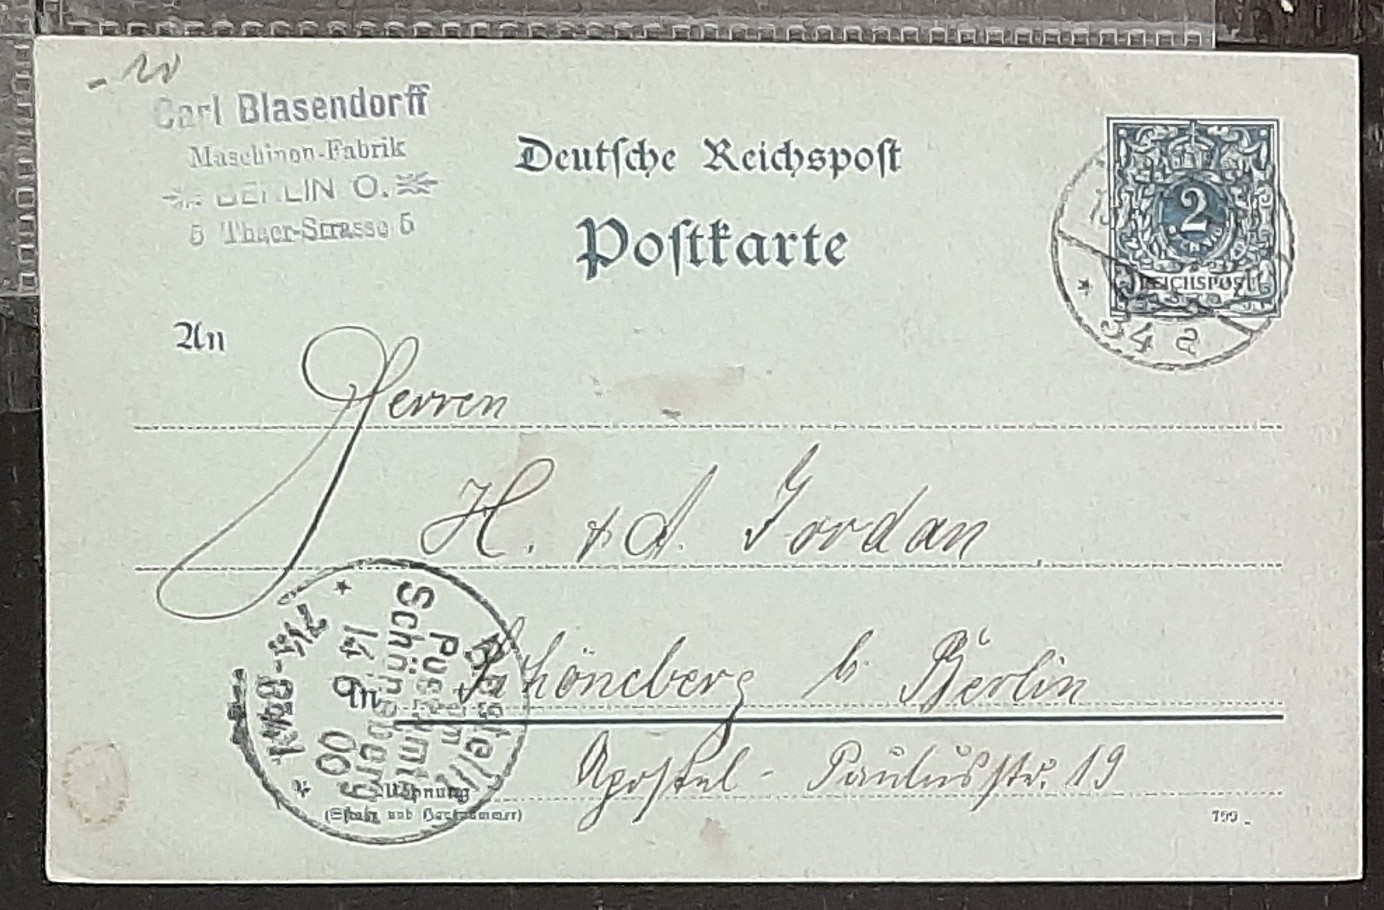 - 20
Carl Blasendorff
Maschinen-Fabrik
BERLIN O.
5 Thaer-Strasse 5
Deutsche Reichspost
Postkarte
2
REICHSPOST
34 a
An
Herren
H. & A. Jordan
Schöneberg b. Berlin
Apostel-Paulusstr. 19
Bestellt
vom
Postamte
Schöneberg
14 6 00
Wohnung
(Straße und Hausnummer)